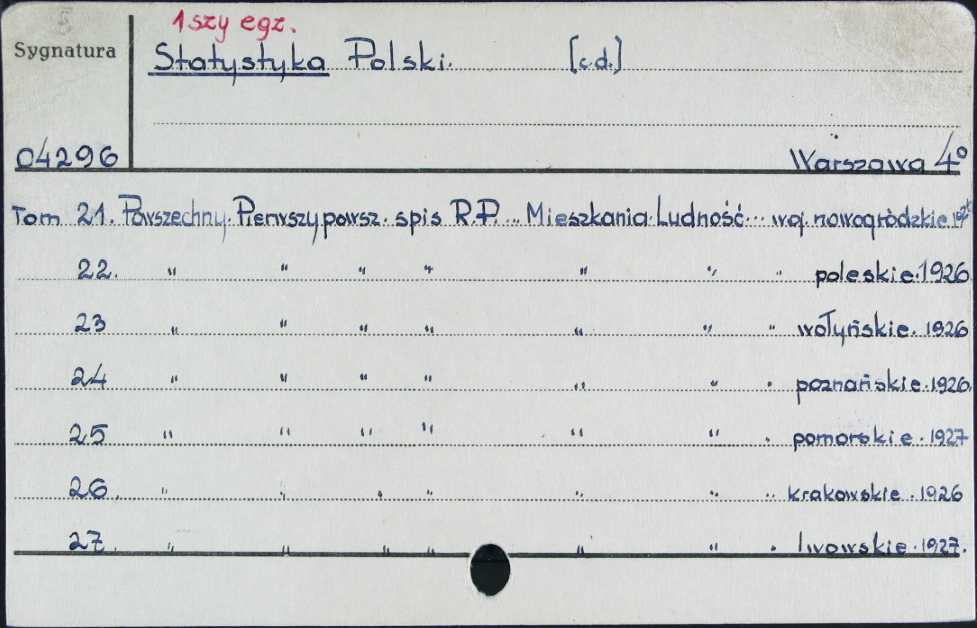 5
1szy egz.
Sygnatura
Statystyka Polski. [c.d.]
04296
Warszawa 4º
Tom 21. Powszechny. Pierwszy powsz. spis R.P... Mieszkania. Ludność... woj. nowogródzkie
22. " " " " " " " poleskie. 1926
23 " " " " " " " wołyńskie. 1926
24 " " " " " " " poznańskie. 1926.
25 " " " " " " " pomorskie. 1927
26. " " " " " " " krakowskie. 1926
27. " " " " " " " lwowskie. 1927.